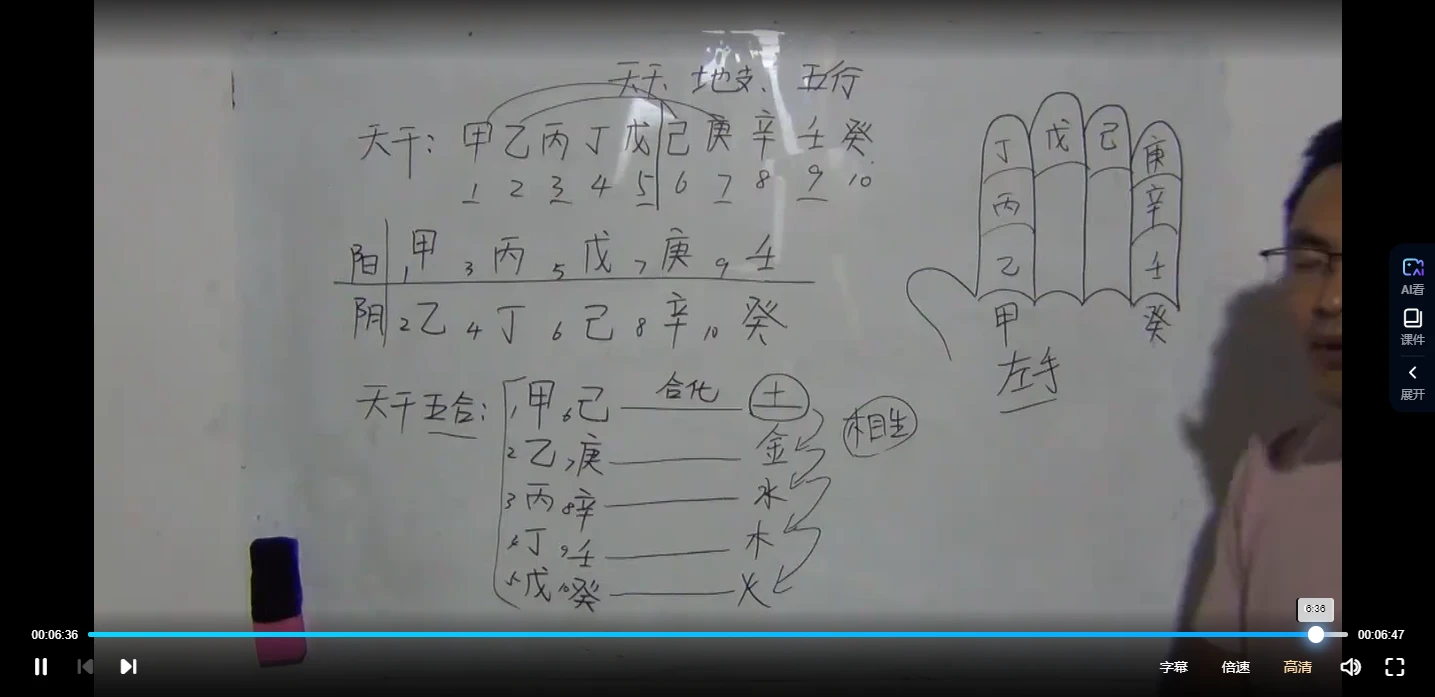 天干、地支、五行
天干：甲乙丙丁戊己庚辛壬癸
1 2 3 4 5 6 7 8 9 10
阳 1甲 3丙 5戊 7庚 9壬
阴 2乙 4丁 6己 8辛 10癸
天干五合：1甲6己 合化 土 相生
2乙7庚 金
3丙8辛 水
4丁9壬 木
5戊10癸 火
丁 戊 己 庚
丙 辛
乙 壬
甲 癸
左手
AI看
课件
展开
6:36
00:06:36
00:06:47
字幕 倍速 高清